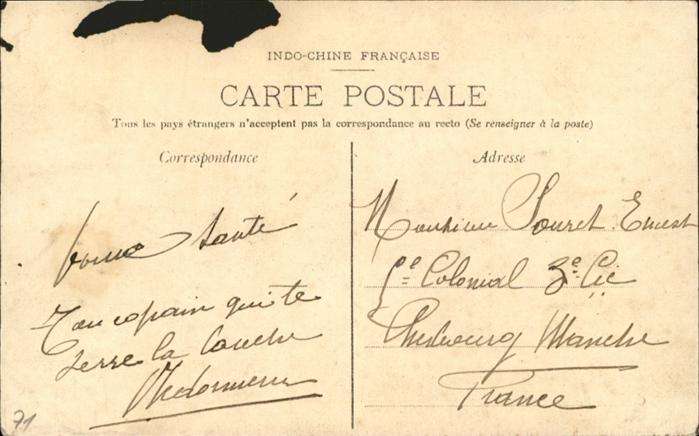 INDO-CHINE FRANÇAISE
CARTE POSTALE
Tous les pays étrangers n'acceptent pas la correspondance au recto (Se renseigner à la poste)
Correspondance
bonne santé
Ton copain qui te
serre la
Adresse
Monsieur Ernest
Colonial 3e Cie
Cherbourg Manche
France
71